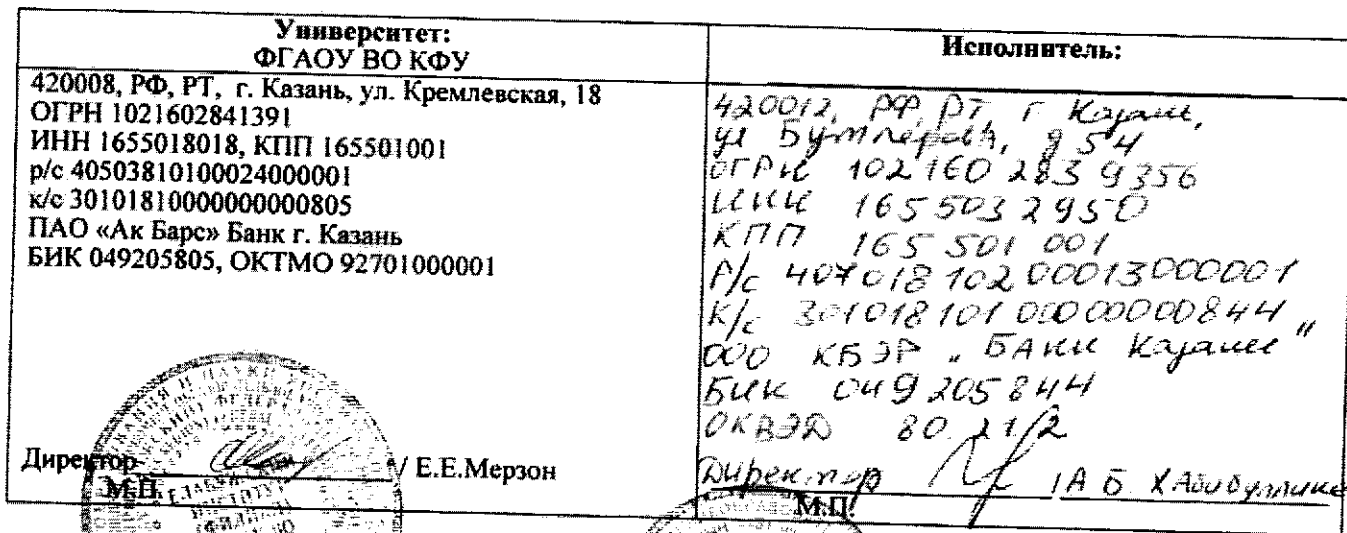 Университет:
ФГАОУ ВО КФУ
420008, РФ, РТ, г. Казань, ул. Кремлевская, 18
ОГРН 1021602841391
ИНН 1655018018, КПП 165501001
р/с 40503810100024000001
к/с 30101810000000000805
ПАО «Ак Барс» Банк г. Казань
БИК 049205805, ОКТМО 92701000001
Директор / Е.Е.Мерзон
М.П.
Исполнитель:
420012, РФ, РТ, г Казань,
ул Бутлерова, д 54
ОГРН 102 160 283 9356
ИНН 165 503 2950
КПП 165 501 001
Р/с 407018 102 00013000001
К/с 301018 101 00000000844
ООО КБЭР "БАНК Казани"
БИК 049205844
ОКВЭД 80.21/2
Директор / А Б Хабибуллина
М.П.